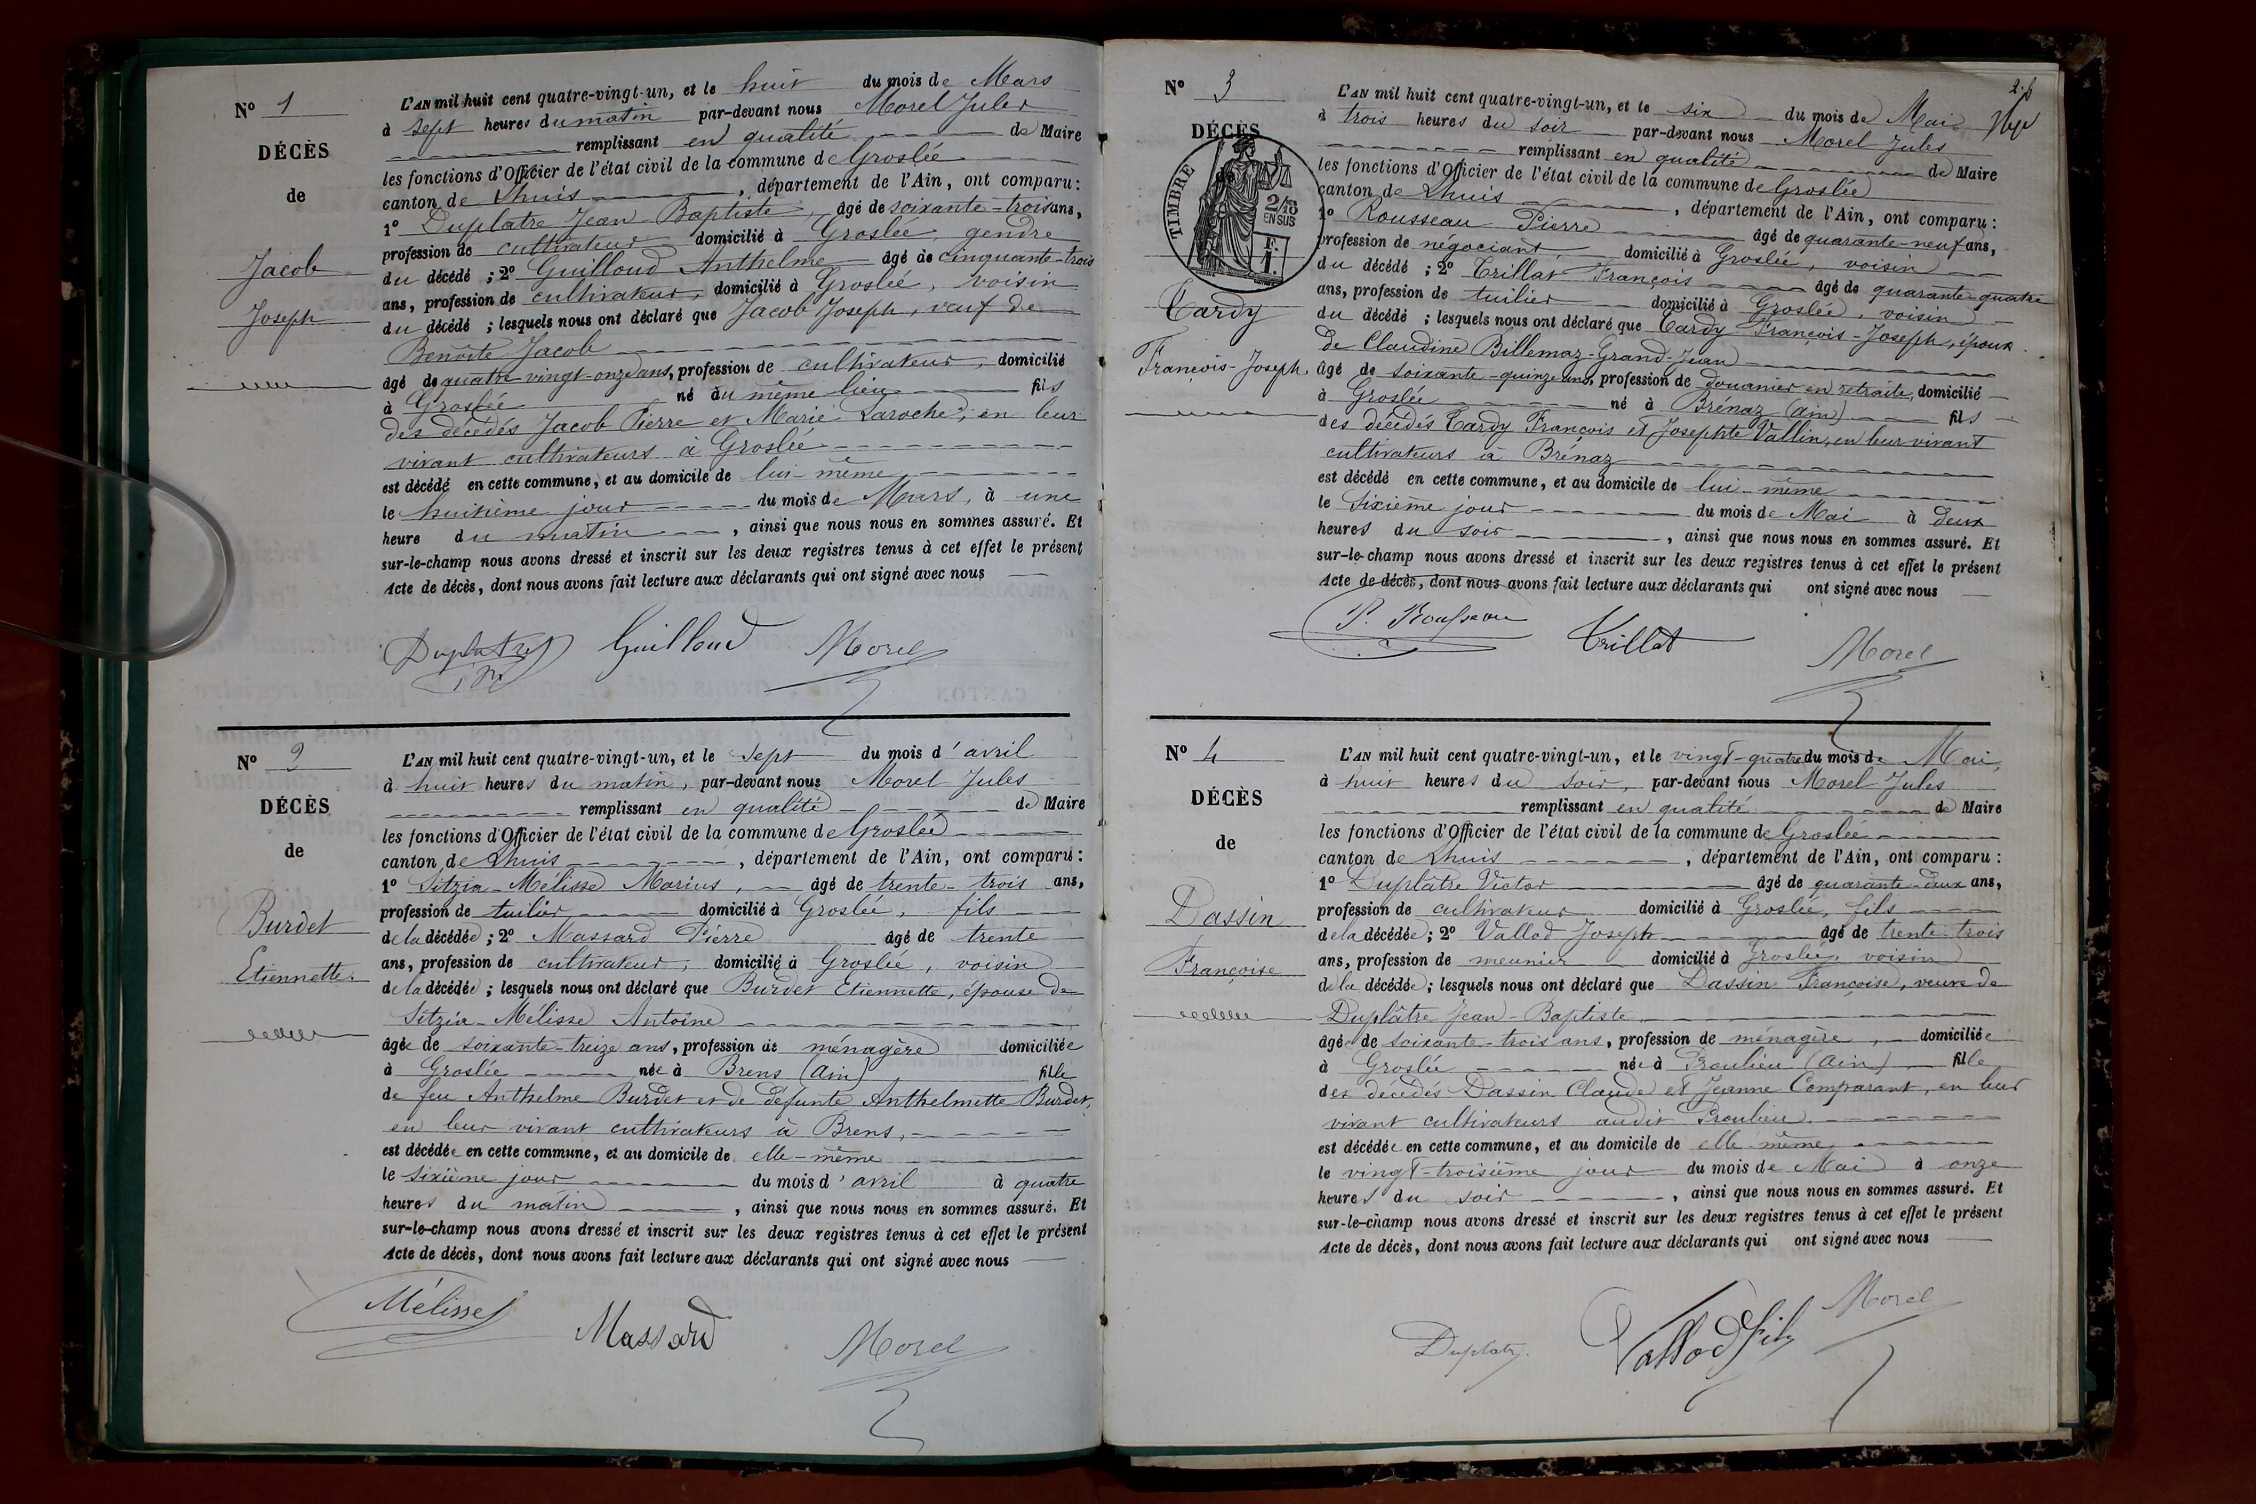 N° 1
DÉCÈS
de
Jacob
Joseph
L'AN mil huit cent quatre-vingt-un, et le huit du mois de Mars
à sept heures du matin par-devant nous Morel Jules
remplissant en qualité de Maire
les fonctions d'Officier de l'état civil de la commune de Groslée
canton de Lhuis, département de l'Ain, ont comparu :
1° Duplatre Jean-Baptiste, âgé de soixante-trois ans,
profession de cultivateur domicilié à Groslée gendre
du décédé ; 2° Guilloud Anthelme âgé de cinquante-trois
ans, profession de cultivateur, domicilié à Groslée, voisin
du décédé ; lesquels nous ont déclaré que Jacob Joseph, veuf de
Benoîte Jacob
âgé de quatre-vingt-onze ans, profession de cultivateur, domicilié
à Groslée né au même lieu fils
des décédés Jacob Pierre et Marie Laroche, en leur
vivant cultivateurs à Groslée
est décédé en cette commune, et au domicile de lui-même
le huitième jour du mois de Mars, à une
heure du matin, ainsi que nous nous en sommes assuré. Et
sur-le-champ nous avons dressé et inscrit sur les deux registres tenus à cet effet le présent
Acte de décès, dont nous avons fait lecture aux déclarants qui ont signé avec nous
Duplatre Guilloud Morel
N° 2
DÉCÈS
de
Burdet
Etiennette
L'AN mil huit cent quatre-vingt-un, et le sept du mois d'avril
à huit heures du matin, par-devant nous Morel Jules
remplissant en qualité de Maire
les fonctions d'Officier de l'état civil de la commune de Groslée
canton de Lhuis, département de l'Ain, ont comparu :
1° Sitzia-Mélisse Marius, âgé de trente-trois ans,
profession de tuilier domicilié à Groslée, fils
de la décédée ; 2° Massard Pierre âgé de trente
ans, profession de cultivateur, domicilié à Groslée, voisin
de la décédée ; lesquels nous ont déclaré que Burdet Etiennette, épouse de
Sitzia-Mélisse Antoine
âgée de soixante-treize ans, profession de ménagère domiciliée
à Groslée née à Brens (Ain) fille
de feu Anthelme Burdet et de défunte Anthelmette Burdet,
en leur vivant cultivateurs à Brens,
est décédée en cette commune, et au domicile de elle-même
le sixième jour du mois d'avril à quatre
heures du matin, ainsi que nous nous en sommes assuré. Et
sur-le-champ nous avons dressé et inscrit sur les deux registres tenus à cet effet le présent
Acte de décès, dont nous avons fait lecture aux déclarants qui ont signé avec nous
Mélisse Massard Morel
N° 3
DÉCÈS
TIMBRE
2/10
EN SUS
F.
1.
Tardy
François-Joseph
L'AN mil huit cent quatre-vingt-un, et le six du mois de Mai
à trois heures du soir par-devant nous Morel Jules
remplissant en qualité de Maire
les fonctions d'Officier de l'état civil de la commune de Groslée
canton de Lhuis, département de l'Ain, ont comparu :
1° Rousseau Pierre âgé de quarante-neuf ans,
profession de négociant domicilié à Groslée, voisin
du décédé ; 2° Trillat François âgé de quarante-quatre
ans, profession de tuilier domicilié à Groslée, voisin
du décédé ; lesquels nous ont déclaré que Tardy François-Joseph, époux
de Claudine Billemaz-Grand-Jean
âgé de soixante-quinze ans, profession de douanier en retraite, domicilié
à Groslée né à Brénaz (Ain) fils
des décédés Tardy François et Josephte Vallin, en leur vivant
cultivateurs à Brénaz
est décédé en cette commune, et au domicile de lui-même
le sixième jour du mois de Mai à deux
heures du soir, ainsi que nous nous en sommes assuré. Et
sur-le-champ nous avons dressé et inscrit sur les deux registres tenus à cet effet le présent
Acte de décès, dont nous avons fait lecture aux déclarants qui ont signé avec nous
P. Rousseau Trillat Morel
N° 4
DÉCÈS
de
Dassin
Françoise
L'AN mil huit cent quatre-vingt-un, et le vingt-quatre du mois de Mai,
à huit heures du soir, par-devant nous Morel Jules
remplissant en qualité de Maire
les fonctions d'Officier de l'état civil de la commune de Groslée
canton de Lhuis, département de l'Ain, ont comparu :
1° Duplâtre Victor âgé de quarante-deux ans,
profession de cultivateur domicilié à Groslée, fils
de la décédée ; 2° Vallod Joseph âgé de trente-trois
ans, profession de meunier domicilié à Groslée, voisin
de la décédée ; lesquels nous ont déclaré que Dassin Françoise, veuve de
Duplâtre Jean-Baptiste
âgée de soixante-trois ans, profession de ménagère, domiciliée
à Groslée née à Proulieu (Ain) fille
des décédés Dassin Claude et Jeanne Comparant, en leur
vivant cultivateurs audit Proulieu
est décédée en cette commune, et au domicile de elle-même
le vingt-troisième jour du mois de Mai à onze
heures du soir, ainsi que nous nous en sommes assuré. Et
sur-le-champ nous avons dressé et inscrit sur les deux registres tenus à cet effet le présent
Acte de décès, dont nous avons fait lecture aux déclarants qui ont signé avec nous
Duplatre Vallod fils Morel